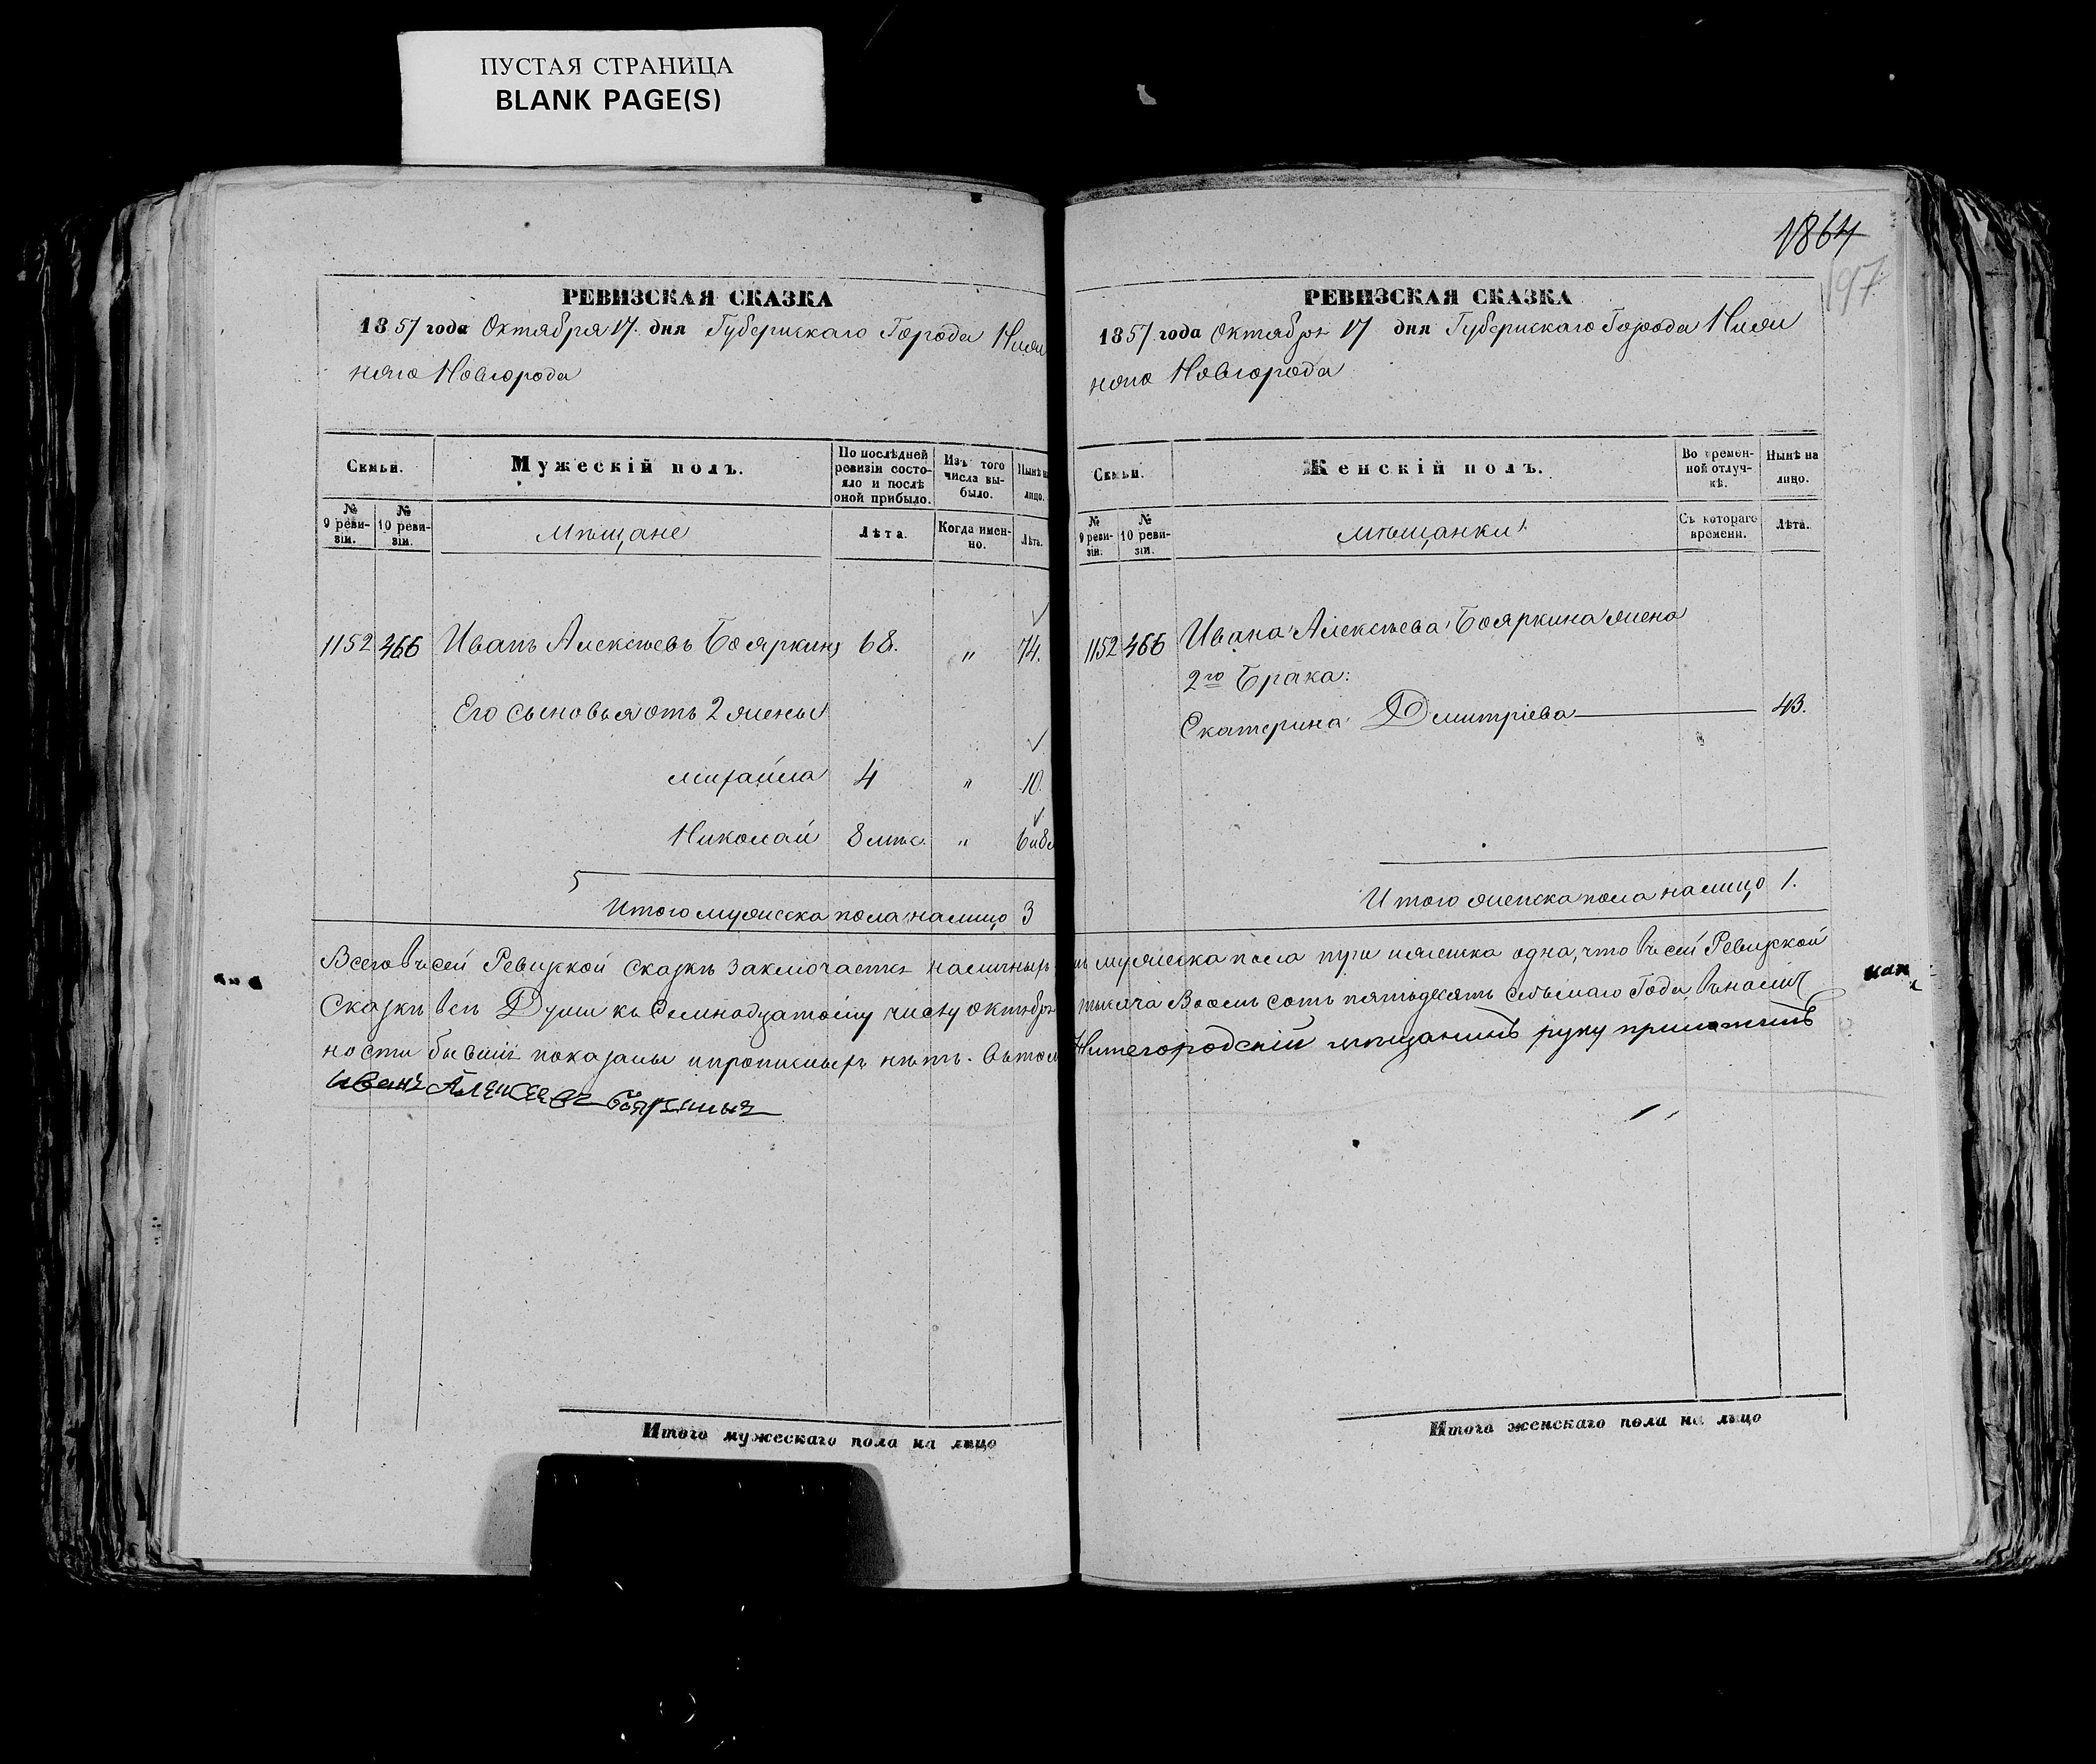 ПУСТАЯ СТРАНИЦА
BLANK PAGE(S)
РЕВИЗСКАЯ СКАЗКА
1857 года Октября 17 дня Губернскаго Города Ниж
няго Новгорода
Семьи.
Мужескій полъ.
По послѣдней ревизіи состояло и послѣ оной прибыло.
Изъ того числа выбыло.
Нынѣ на лицо.
№ 9 ревизіи.
№ 10 ревизіи.
Мѣщане
Лѣта.
Когда именно.
Лѣта.
1152 466 Иванъ Алексѣевъ Бояркинъ 68. " 74.
Его сыновья отъ 2 жены
Михайла 4 " 10.
Николай 8 мѣс. " 6 и 8
Итого мужеска пола налицо 3
Всего въ сей Ревизкой сказкѣ заключается наличныхъ
Сказкѣ всѣ Души къ Семнадцатому числу октября
ности бывшіе показаны и прописныхъ нѣтъ. Въ том
Иванъ Алексеевъ Бояркинъ
Итого мужескаго пола на лицо
1864
197
РЕВИЗСКАЯ СКАЗКА
1857 года Октября 17 дня Губернскаго Города Ниж
няго Новгорода
Семьи.
Женскій полъ.
Во временной отлучкѣ.
Нынѣ на лицо.
№ 9 ревизіи.
№ 10 ревизіи.
Мѣщанки
Съ котораго времени.
Лѣта.
1152 466 Ивана Алексѣева Бояркина жена
2го Брака:
Екатерина Дмитріева 43.
Итого женска пола налицо 1.
мужеска пола три и женска одна, что въ сей Ревизкой
тысяча Восемь сотъ пятьдесятъ седьмаго Года, въ налич
Нижегородскій мещанинъ руку приложилъ
Итого женскаго пола на лицо